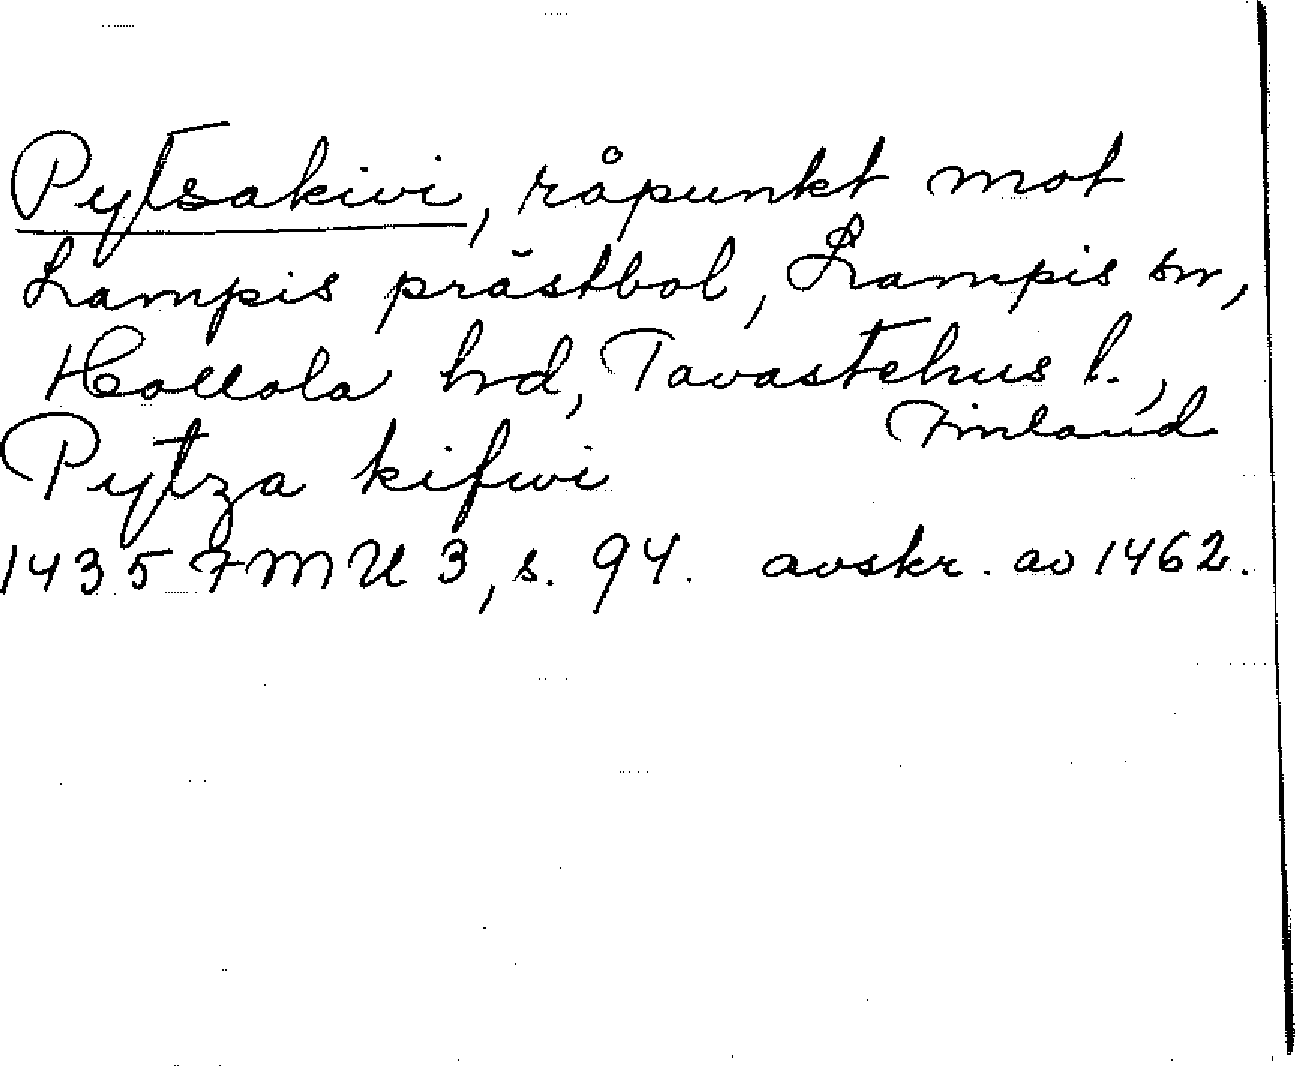 Pytsakivi, råpunkt mot
Lampis prästbol, Lampis sn,
Hollola hrd, Tavastehus l.,
Finland
Pytza kifwi
1435 FMU 3, s. 94. avskr. av 1462.